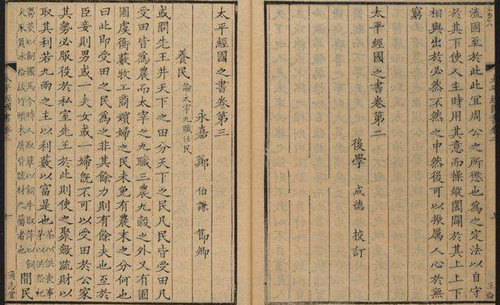 流至於此此宜周公之所也為之定法以自守
於其下使人主時用其意而操縱闔闢於其上上下
相與出於必然不然之中然後可以屬人心於無
窮
太平經國之書卷第二
後學 成德 校訂
太平經國之書卷第三
永嘉 鄭 伯謙 節卿
養民 論太宰九職任民
或問先王井天下之田分天下之民凡民皆
受田皆為農而太宰之九職三農九穀之外又有園
圃虞衡藪牧工商嬪婦之民未免有農末之分何也
曰此即受田之民為之非其餘力則有餘夫也至於
臣妾則男或一夫女或一婦既不可以受田於公家
其勢必服役於私室先王於此則使之聚斂疏財以
取其利若九兩之主以利藪以富是也 閒民